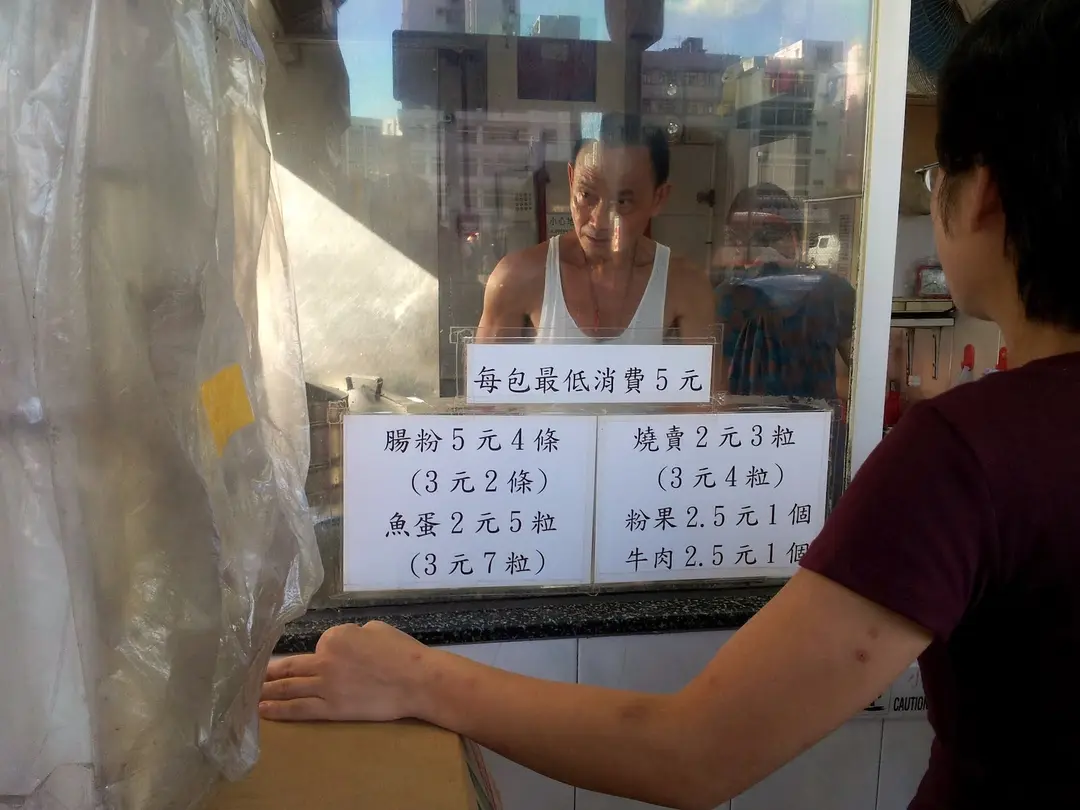 小心地
每包最低消費5元
腸粉5元4條
(3元2條)
魚蛋2元5粒
(3元7粒)
燒賣2元3粒
(3元4粒)
粉果2.5元1個
牛肉2.5元1個
CAUTION